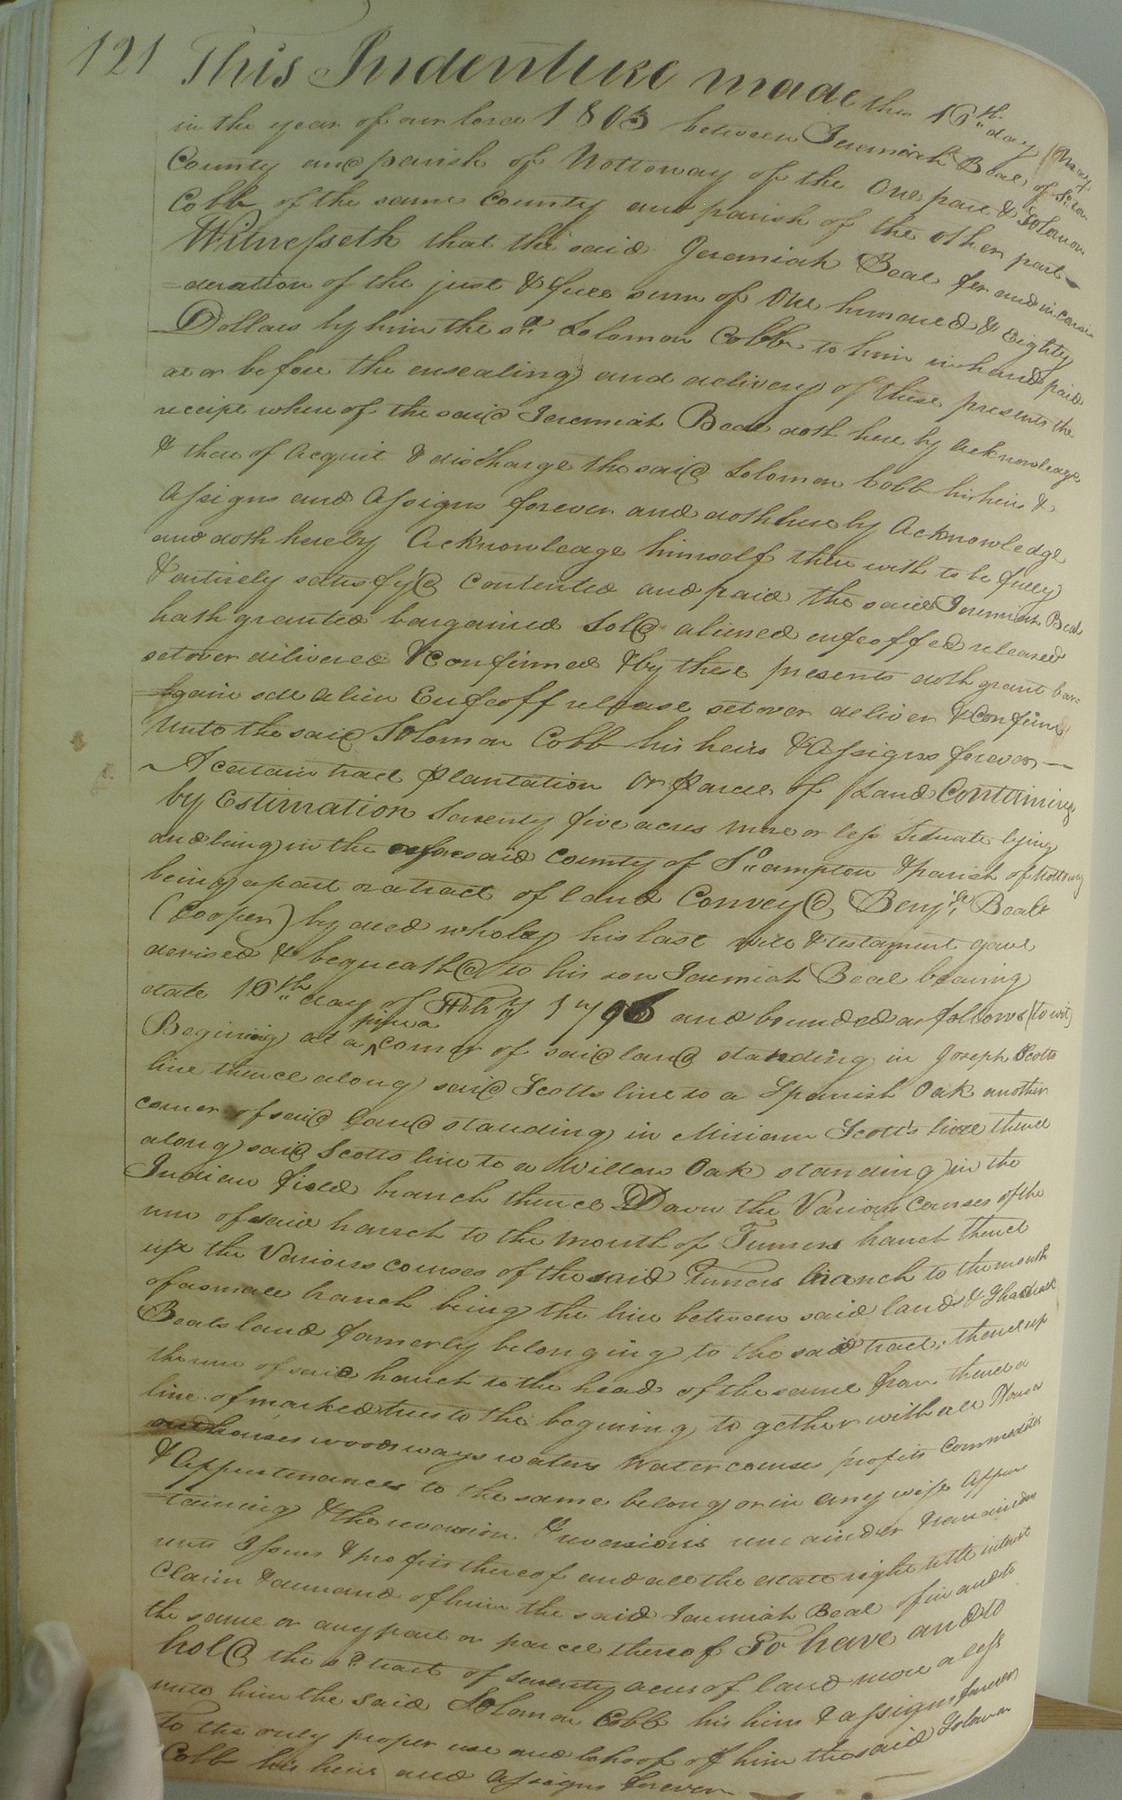 121 This Indenture made this 16th day May
in the year of our lord 1803 between Jeremiah Beal of So.ton
County and parish of Nottoway of the One part & Solomon
Cobb of the same County and parish of the other part
Witnesseth that the said Jeremiah Beal for and in consi-
=deration of the just & full sum of One hundred & Eighty
Dollars by him the sd. Solomon Cobb to him in hand paid
at or before the ensealing and delivery of these presents the
receipt where of the said Jeremiah Beal doth here by acknowledge
& there of Acquit & discharge the said Solomon Cobb his heirs &
Assigns and Assigns forever and doth here by Acknowledge
and doth hereby Acknowledge himself there with to be fully
& entirely satisfy'd Contented and paid the said Jeremiah Beal
hath granted bargained Sold aliened enfeoffed released
set over delivered & confirmed & by these presents doth grant bar=
=gain sell alien Enfeoff release set over deliver & Confirm
Unto the said Solomon Cobb his heirs & Assigns forever
A certain tract Plantation Or Parcel of Land Containing
by Estimation Seventy five acres more or less Situate lying
and being in the aforesaid County of So.ampton & Parish of Nottoway
being a part or a tract of land Convey'd Benja. Beal
(Cooper) by deed who by his last will & testament gave
devised & bequeath'd to his son Jeremiah Beal bearing
date 10th day of Feby 1796 and bounded as follows (to wit)
Begining at a pine a corner of said land standing in Joseph Scotts
line thence along said Scotts line to a Spanish Oak another
corner of said land standing in Miriam Scott's line thence
along said Scotts line to a Willow Oak standing in the
Indian field branch thence Down the Various Courses of the
run of said branch to the mouth of Turners branch thence
up the Various courses of the said Turners branch to the mouth
of a small branch being the line between said land & Shadrack
Beals land formerly belonging to the said tract, thence up
the run of said branch to the head of the same from thence a
line of marked trees to the begining to gether with all Houses
outhouses woods ways waters Water courses profits Commodities
& Appurtenances to the same belong or in any wise Apper
=taining & the reversion & reversions remainder & remainders
rents Issues & profits thereof and all the estate right title interest
Claim & demand of him the said Jeremiah Beal of in and to
the same or any part or parcel thereof To have and to
hold the sd. tract of seventy acres of land more or less
unto him the said Solomon Cobb his heirs & assigns forever
To the only proper use and behoof of him the said Solomon
Cobb his heirs and assigns forever